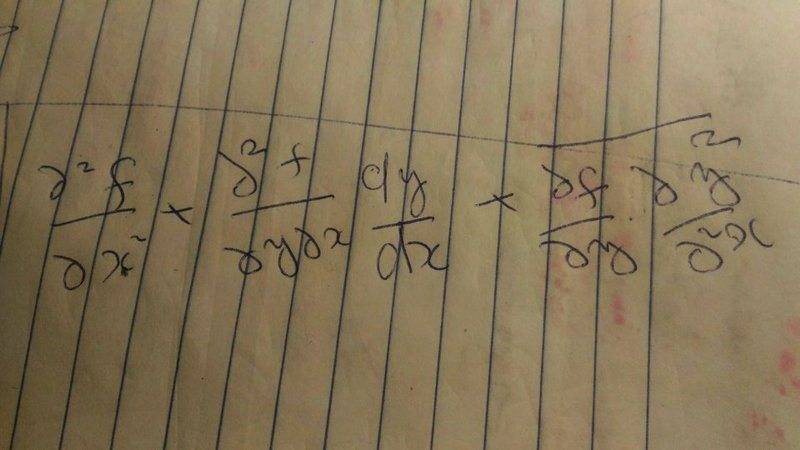 ∂²f/∂x² + ∂²f/∂y∂x dy/dx + ∂f/∂y · ∂y²/∂²x